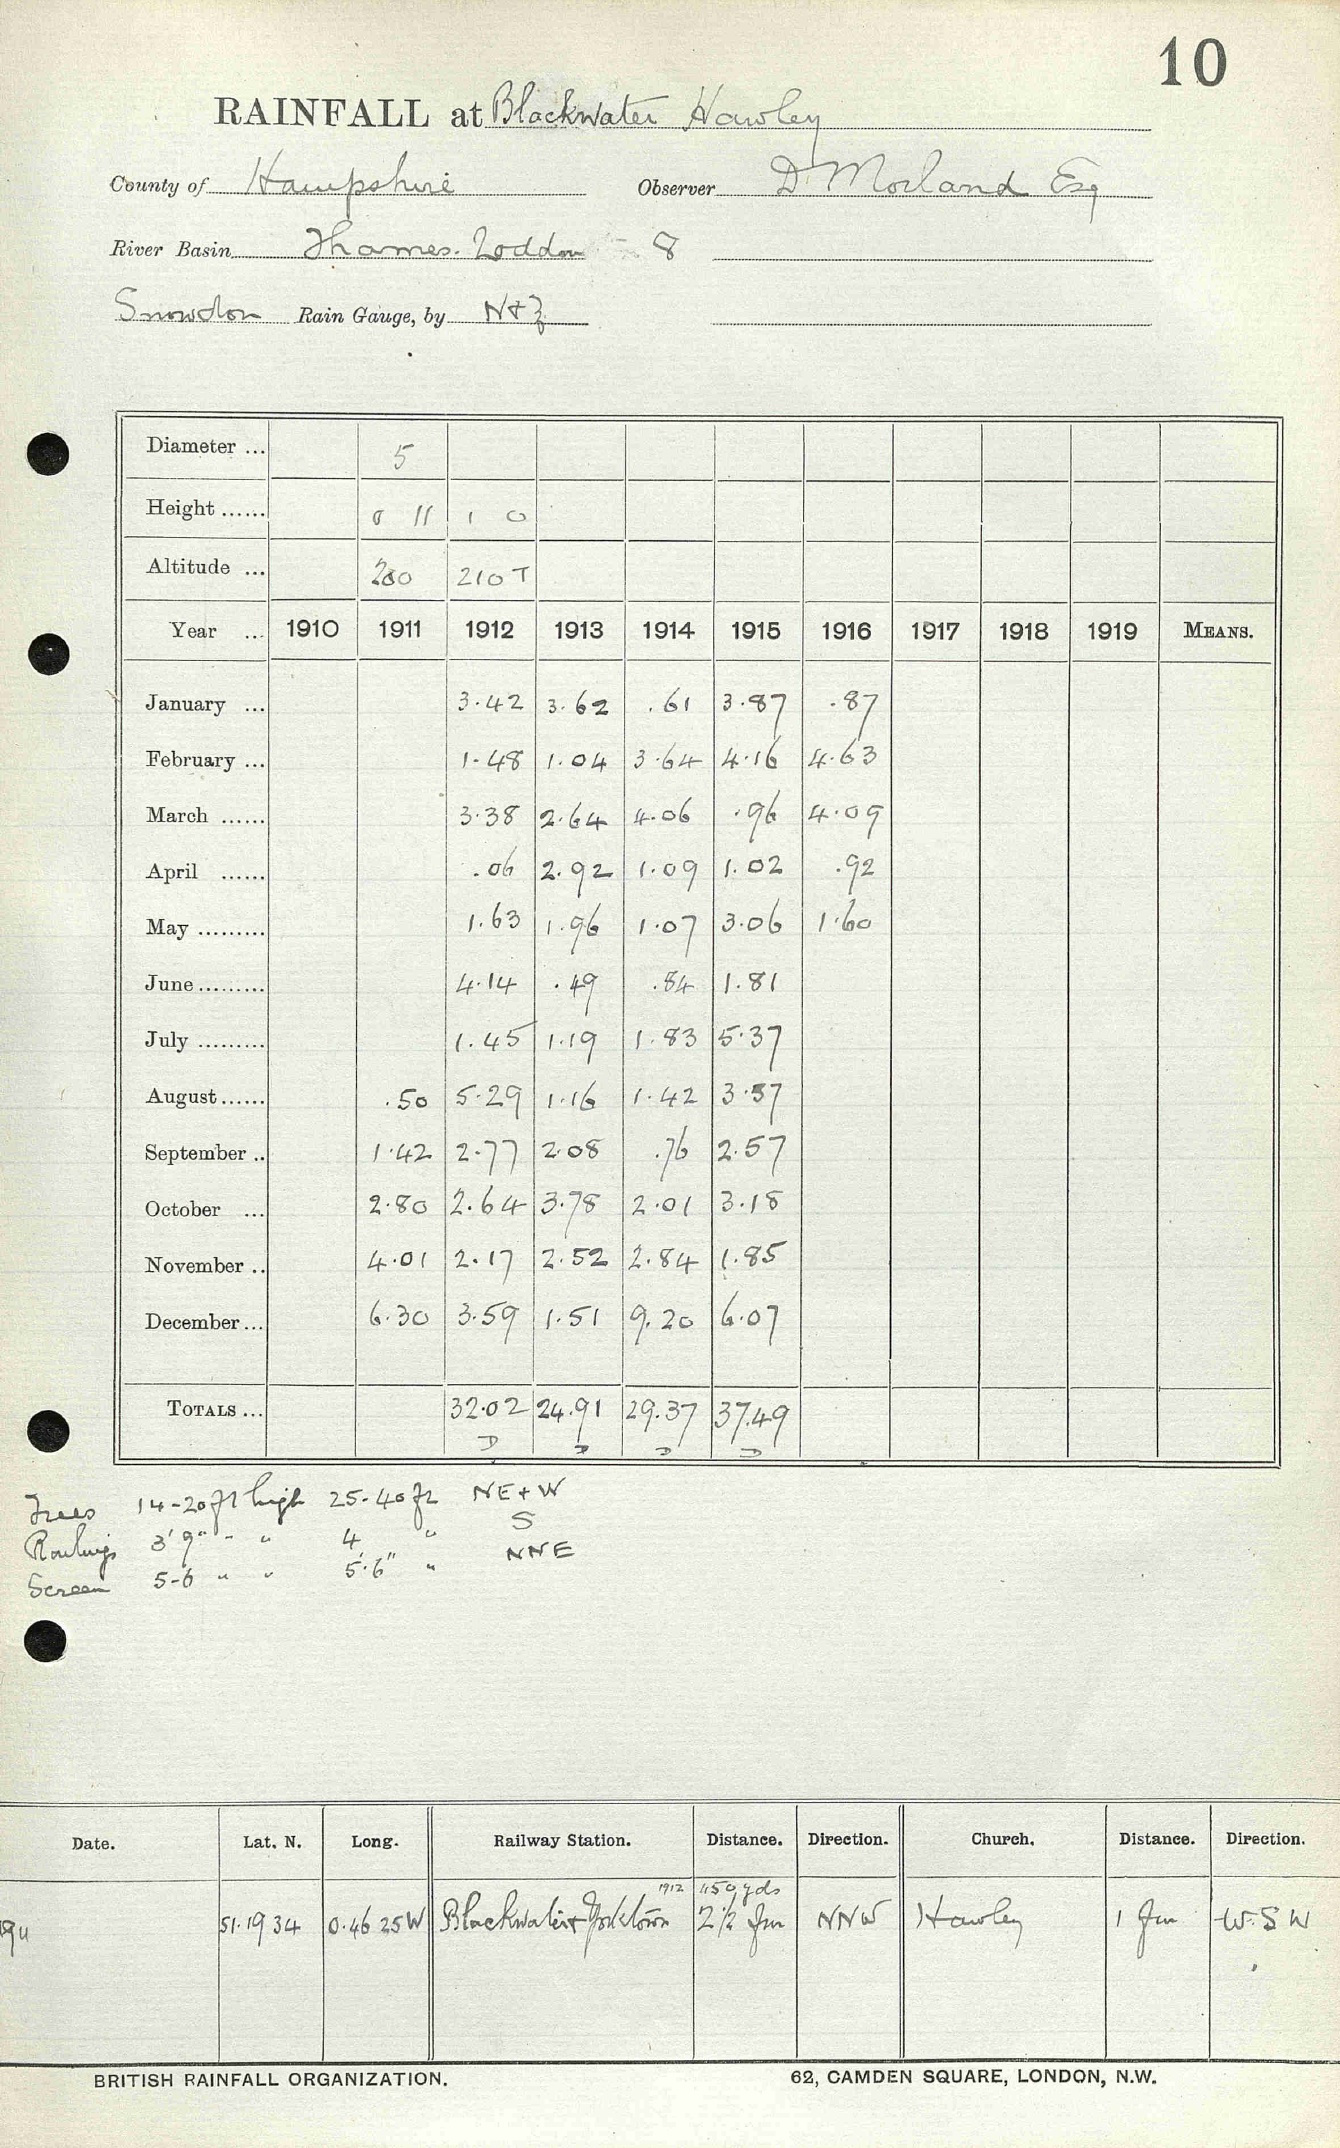 10
RAINFALL at Blackwater Hawley
County of Hampshire Observer D. Morland Esq
River Basin Thames. Loddon 8
Snowdon Rain Gauge, by N+Z
Diameter ... 5
Height ...... 0 11 1 0
Altitude ... 200 210 T
Year ... 1910 1911 1912 1913 1914 1915 1916 1917 1918 1919 MEANS.
January ... 3.42 3.62 .61 3.87 .87
February ... 1.48 1.04 3.64 4.16 4.63
March ...... 3.38 2.64 4.06 .96 4.09
April ...... .06 2.92 1.09 1.02 .92
May ......... 1.63 1.96 1.07 3.06 1.60
June ......... 4.14 .49 .84 1.81
July ......... 1.45 1.19 1.83 5.37
August ...... .50 5.29 1.16 1.42 3.57
September .. 1.42 2.77 2.08 .76 2.57
October ... 2.80 2.64 3.78 2.01 3.18
November .. 4.01 2.17 2.52 2.84 1.85
December ... 6.30 3.59 1.51 9.20 6.07
TOTALS ... 32.02 24.91 29.37 37.49
D D D D
Trees 14-20 ft high 25-40 ft NE + W
Railings 3' 9" - " 4 " S
Screen 5-6 " " 5'.6" " NNE
Date. Lat. N. Long. Railway Station. Distance. Direction. Church. Distance. Direction.
1912 450 yds
51.19 34 0.46 25 W Blackwater + Yorktown 2½ fur NNW Hawley 1 fur W.S W
BRITISH RAINFALL ORGANIZATION. 62, CAMDEN SQUARE, LONDON, N.W.